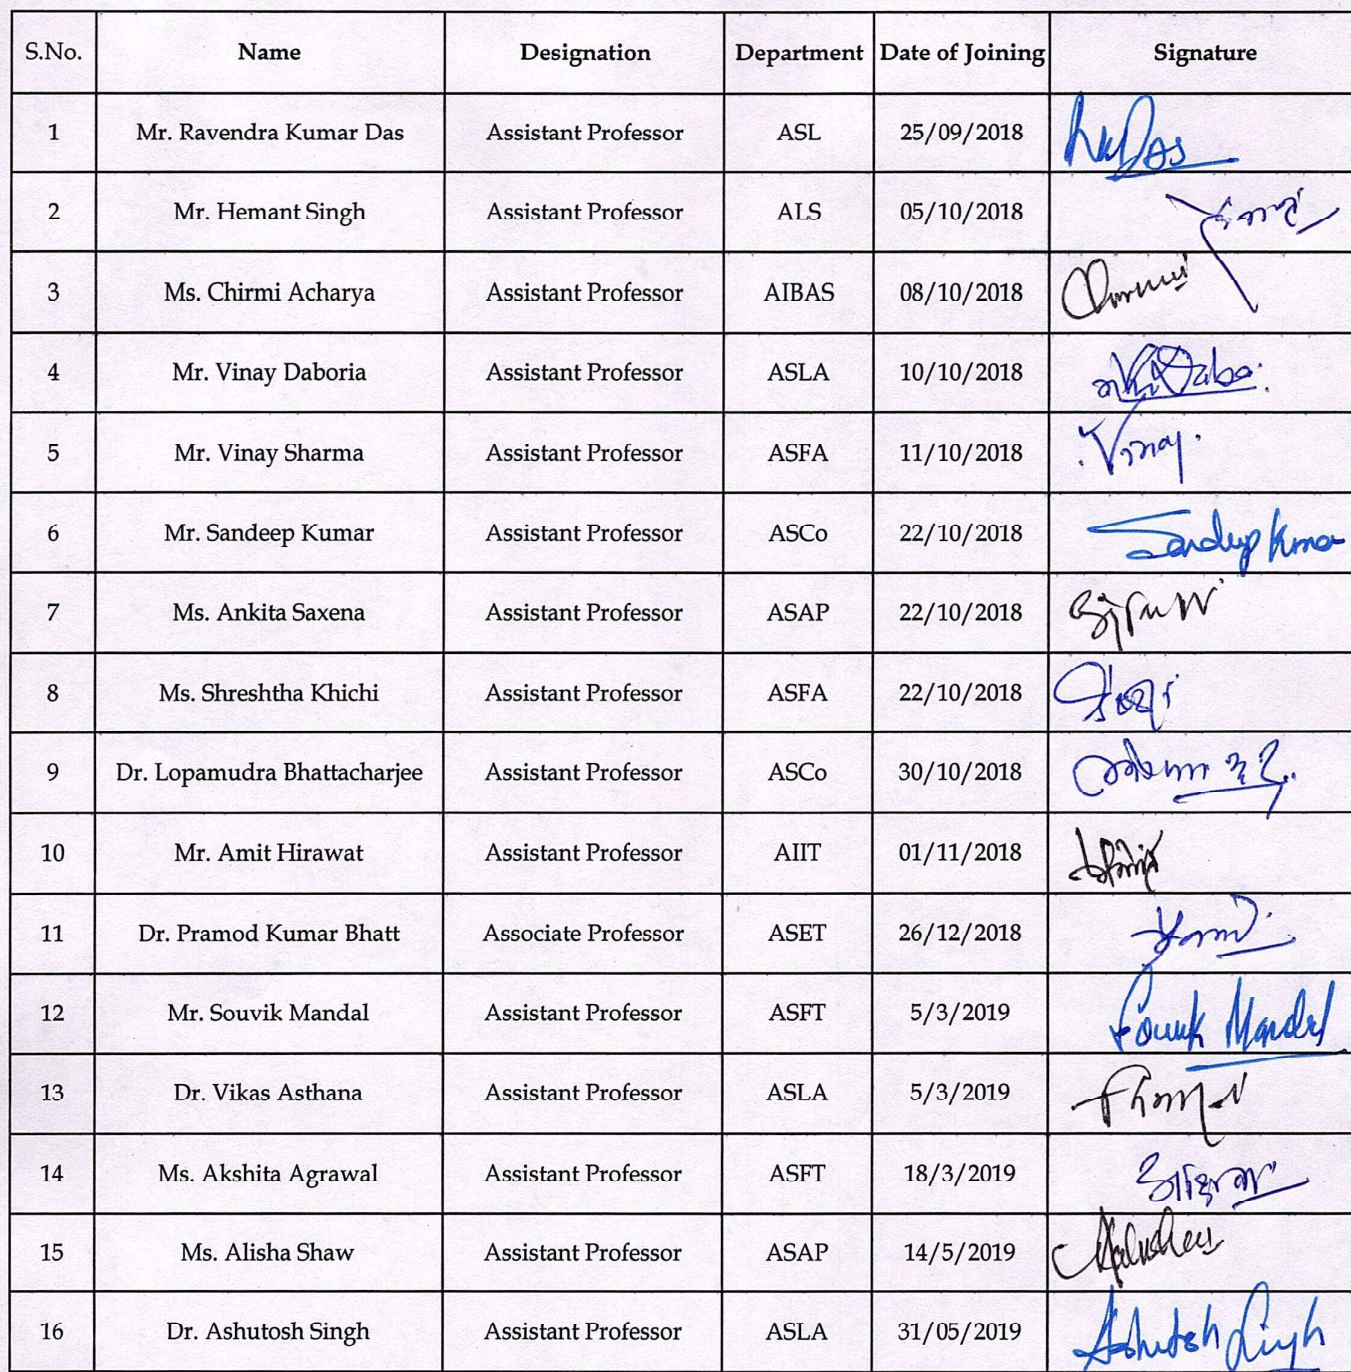 S.No. Name Designation Department Date of Joining Signature
1 Mr. Ravendra Kumar Das Assistant Professor ASL 25/09/2018 RKDas
2 Mr. Hemant Singh Assistant Professor ALS 05/10/2018
3 Ms. Chirmi Acharya Assistant Professor AIBAS 08/10/2018
4 Mr. Vinay Daboria Assistant Professor ASLA 10/10/2018
5 Mr. Vinay Sharma Assistant Professor ASFA 11/10/2018 Vinay.
6 Mr. Sandeep Kumar Assistant Professor ASCo 22/10/2018 Sandeep Kumar
7 Ms. Ankita Saxena Assistant Professor ASAP 22/10/2018
8 Ms. Shreshtha Khichi Assistant Professor ASFA 22/10/2018
9 Dr. Lopamudra Bhattacharjee Assistant Professor ASCo 30/10/2018
10 Mr. Amit Hirawat Assistant Professor AIIT 01/11/2018
11 Dr. Pramod Kumar Bhatt Associate Professor ASET 26/12/2018
12 Mr. Souvik Mandal Assistant Professor ASFT 5/3/2019 Souvik Mandal
13 Dr. Vikas Asthana Assistant Professor ASLA 5/3/2019
14 Ms. Akshita Agrawal Assistant Professor ASFT 18/3/2019
15 Ms. Alisha Shaw Assistant Professor ASAP 14/5/2019
16 Dr. Ashutosh Singh Assistant Professor ASLA 31/05/2019 Ashutosh Singh